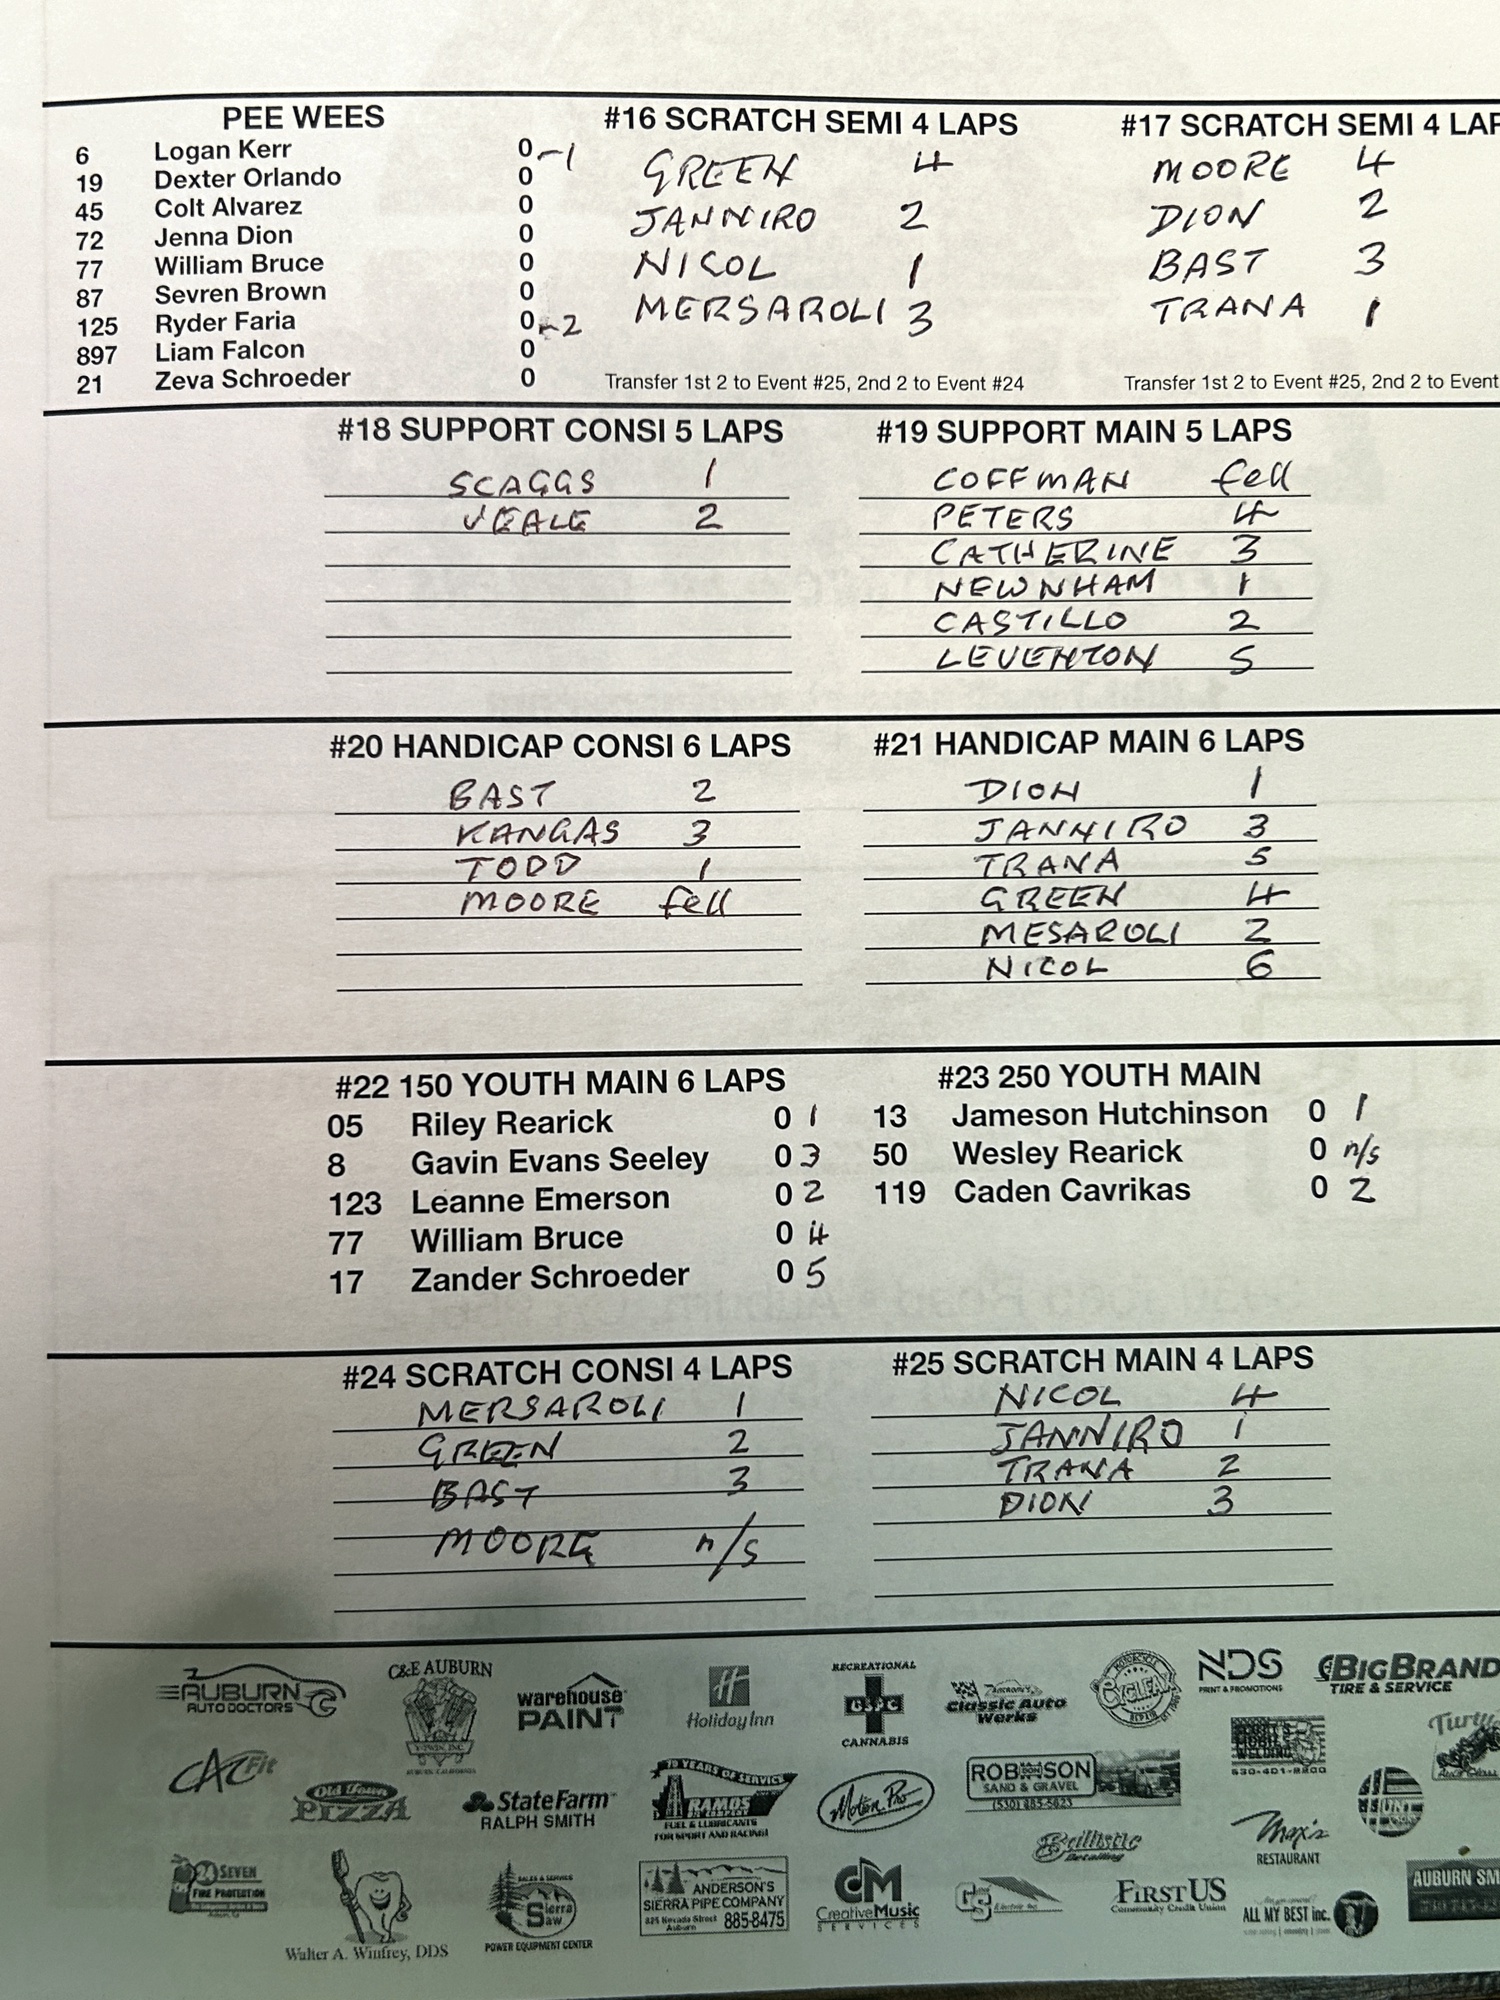 PEE WEES
6 Logan Kerr 0 -1
19 Dexter Orlando 0
45 Colt Alvarez 0
72 Jenna Dion 0
77 William Bruce 0
87 Sevren Brown 0
125 Ryder Faria 0 -2
897 Liam Falcon 0
21 Zeva Schroeder 0
#16 SCRATCH SEMI 4 LAPS
GREEN 4
JANNIRO 2
NICOL 1
MERSAROLI 3
Transfer 1st 2 to Event #25, 2nd 2 to Event #24
#17 SCRATCH SEMI 4 LAP
MOORE 4
DION 2
BAST 3
TRANA 1
Transfer 1st 2 to Event #25, 2nd 2 to Event
#18 SUPPORT CONSI 5 LAPS
SCAGGS 1
VEALE 2
#19 SUPPORT MAIN 5 LAPS
COFFMAN fell
PETERS 4
CATHERINE 3
NEWNHAM 1
CASTILLO 2
LEVENTON 5
#20 HANDICAP CONSI 6 LAPS
BAST 2
KANGAS 3
TODD 1
MOORE fell
#21 HANDICAP MAIN 6 LAPS
DION 1
JANNIRO 3
TRANA 5
GREEN 4
MESAROLI 2
NICOL 6
#22 150 YOUTH MAIN 6 LAPS
05 Riley Rearick 0 1
8 Gavin Evans Seeley 0 3
123 Leanne Emerson 0 2
77 William Bruce 0 4
17 Zander Schroeder 0 5
#23 250 YOUTH MAIN
13 Jameson Hutchinson 0 1
50 Wesley Rearick 0 n/s
119 Caden Cavrikas 0 2
#24 SCRATCH CONSI 4 LAPS
MERSAROLI 1
GREEN 2
BAST 3
MOORE n/s
#25 SCRATCH MAIN 4 LAPS
NICOL 4
JANNIRO 1
TRANA 2
DION 3
AUBURN
AUTO DOCTORS
C&E AUBURN
V-TWIN, INC.
AUBURN, CALIFORNIA
warehouse
PAINT
Holiday Inn
RECREATIONAL
CANNABIS
Classic Auto
Werks
MOTORCYCLE
CYCLEFAX
REPAIR
NDS
PRINT & PROMOTIONS
BIGBRAND
TIRE & SERVICE
CAC Fit
Old Town
PIZZA
StateFarm
RALPH SMITH
70 YEARS OF SERVICE
RAMOS
FUEL & LUBRICANTS
FOR SPORT AND RACING!
Motion Pro
ROBINSON
SAND & GRAVEL
(530) 885-5823
MOBILE
WELDING
530-401-8800
HUNT
Max's
RESTAURANT
Ballistic
Detailing
SEVEN
FIRE PROTECTION
Walter A. Winfrey, DDS
SALES & SERVICE
Sierra
Saw
POWER EQUIPMENT CENTER
ANDERSON'S
SIERRA PIPE COMPANY
825 Nevada Street
Auburn 885-8475
CM
CreativeMusic
SERVICES
FIRST US
Community Credit Union
ALL MY BEST inc.
AUBURN SM